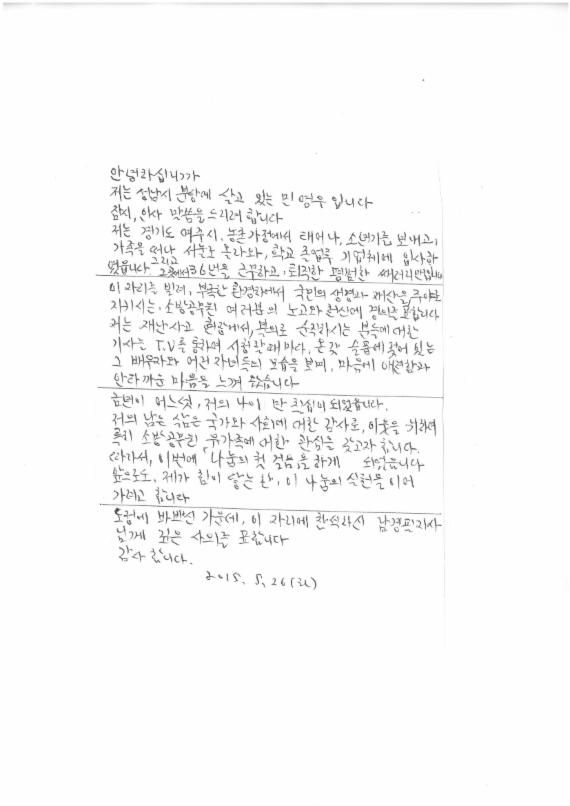 안녕하십니까
저는 성남시 분당에 살고 있는 민영우 입니다
잠시, 인사 말씀을 드리려 합니다
저는 경기도 여주시, 농촌가정에서 태어나, 소년기를 보내고,
가족을 떠나 서울로 올라와, 학교 졸업후 기업체에 입사하
였습니다 그리고 그곳에서 36년을 근무하고, 퇴직한 평범한 쌔러리맨입니다
이 자리를 빌려, 부족한 환경하에서 국민의 생명과 재산을 주야로
지키시는, 소방공무원 여러분의 노고와 헌신에 경의를 표합니다
저는 재난사고 현장에서, 불의로 순직하시는 분들에 대한
기사는 T.V를 통하여 시청할때마다, 온갖 슬픔에 젖어 있는
그 배우자와 어린 자녀들의 모습을 보며, 마음에 애련함과
안타까운 마음을 느껴 왔습니다
금년이 어느덧, 저의 나이 만 칠십이 되었습니다.
저의 남은 삶은 국가와 사회에 대한 감사로, 이웃을 위하여
특히 소방공무원 유가족에 대한 관심을 갖고자 합니다.
따라서, 이번에 「나눔의 첫 걸음」을 하게 되었습니다
앞으로도, 제가 힘이 닿는 한, 이 나눔의 실천을 이어
가려고 합니다
도정에 바쁘신 가운데, 이 자리에 참석하신 남경필지사
님께 깊은 사의를 표합니다
감사 합니다.
2015. 5. 26 (화)